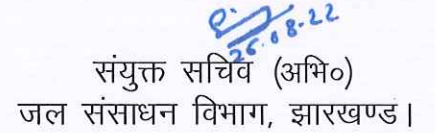 26.08.22
संयुक्त सचिव (अभि०)
जल संसाधन विभाग, झारखण्ड।